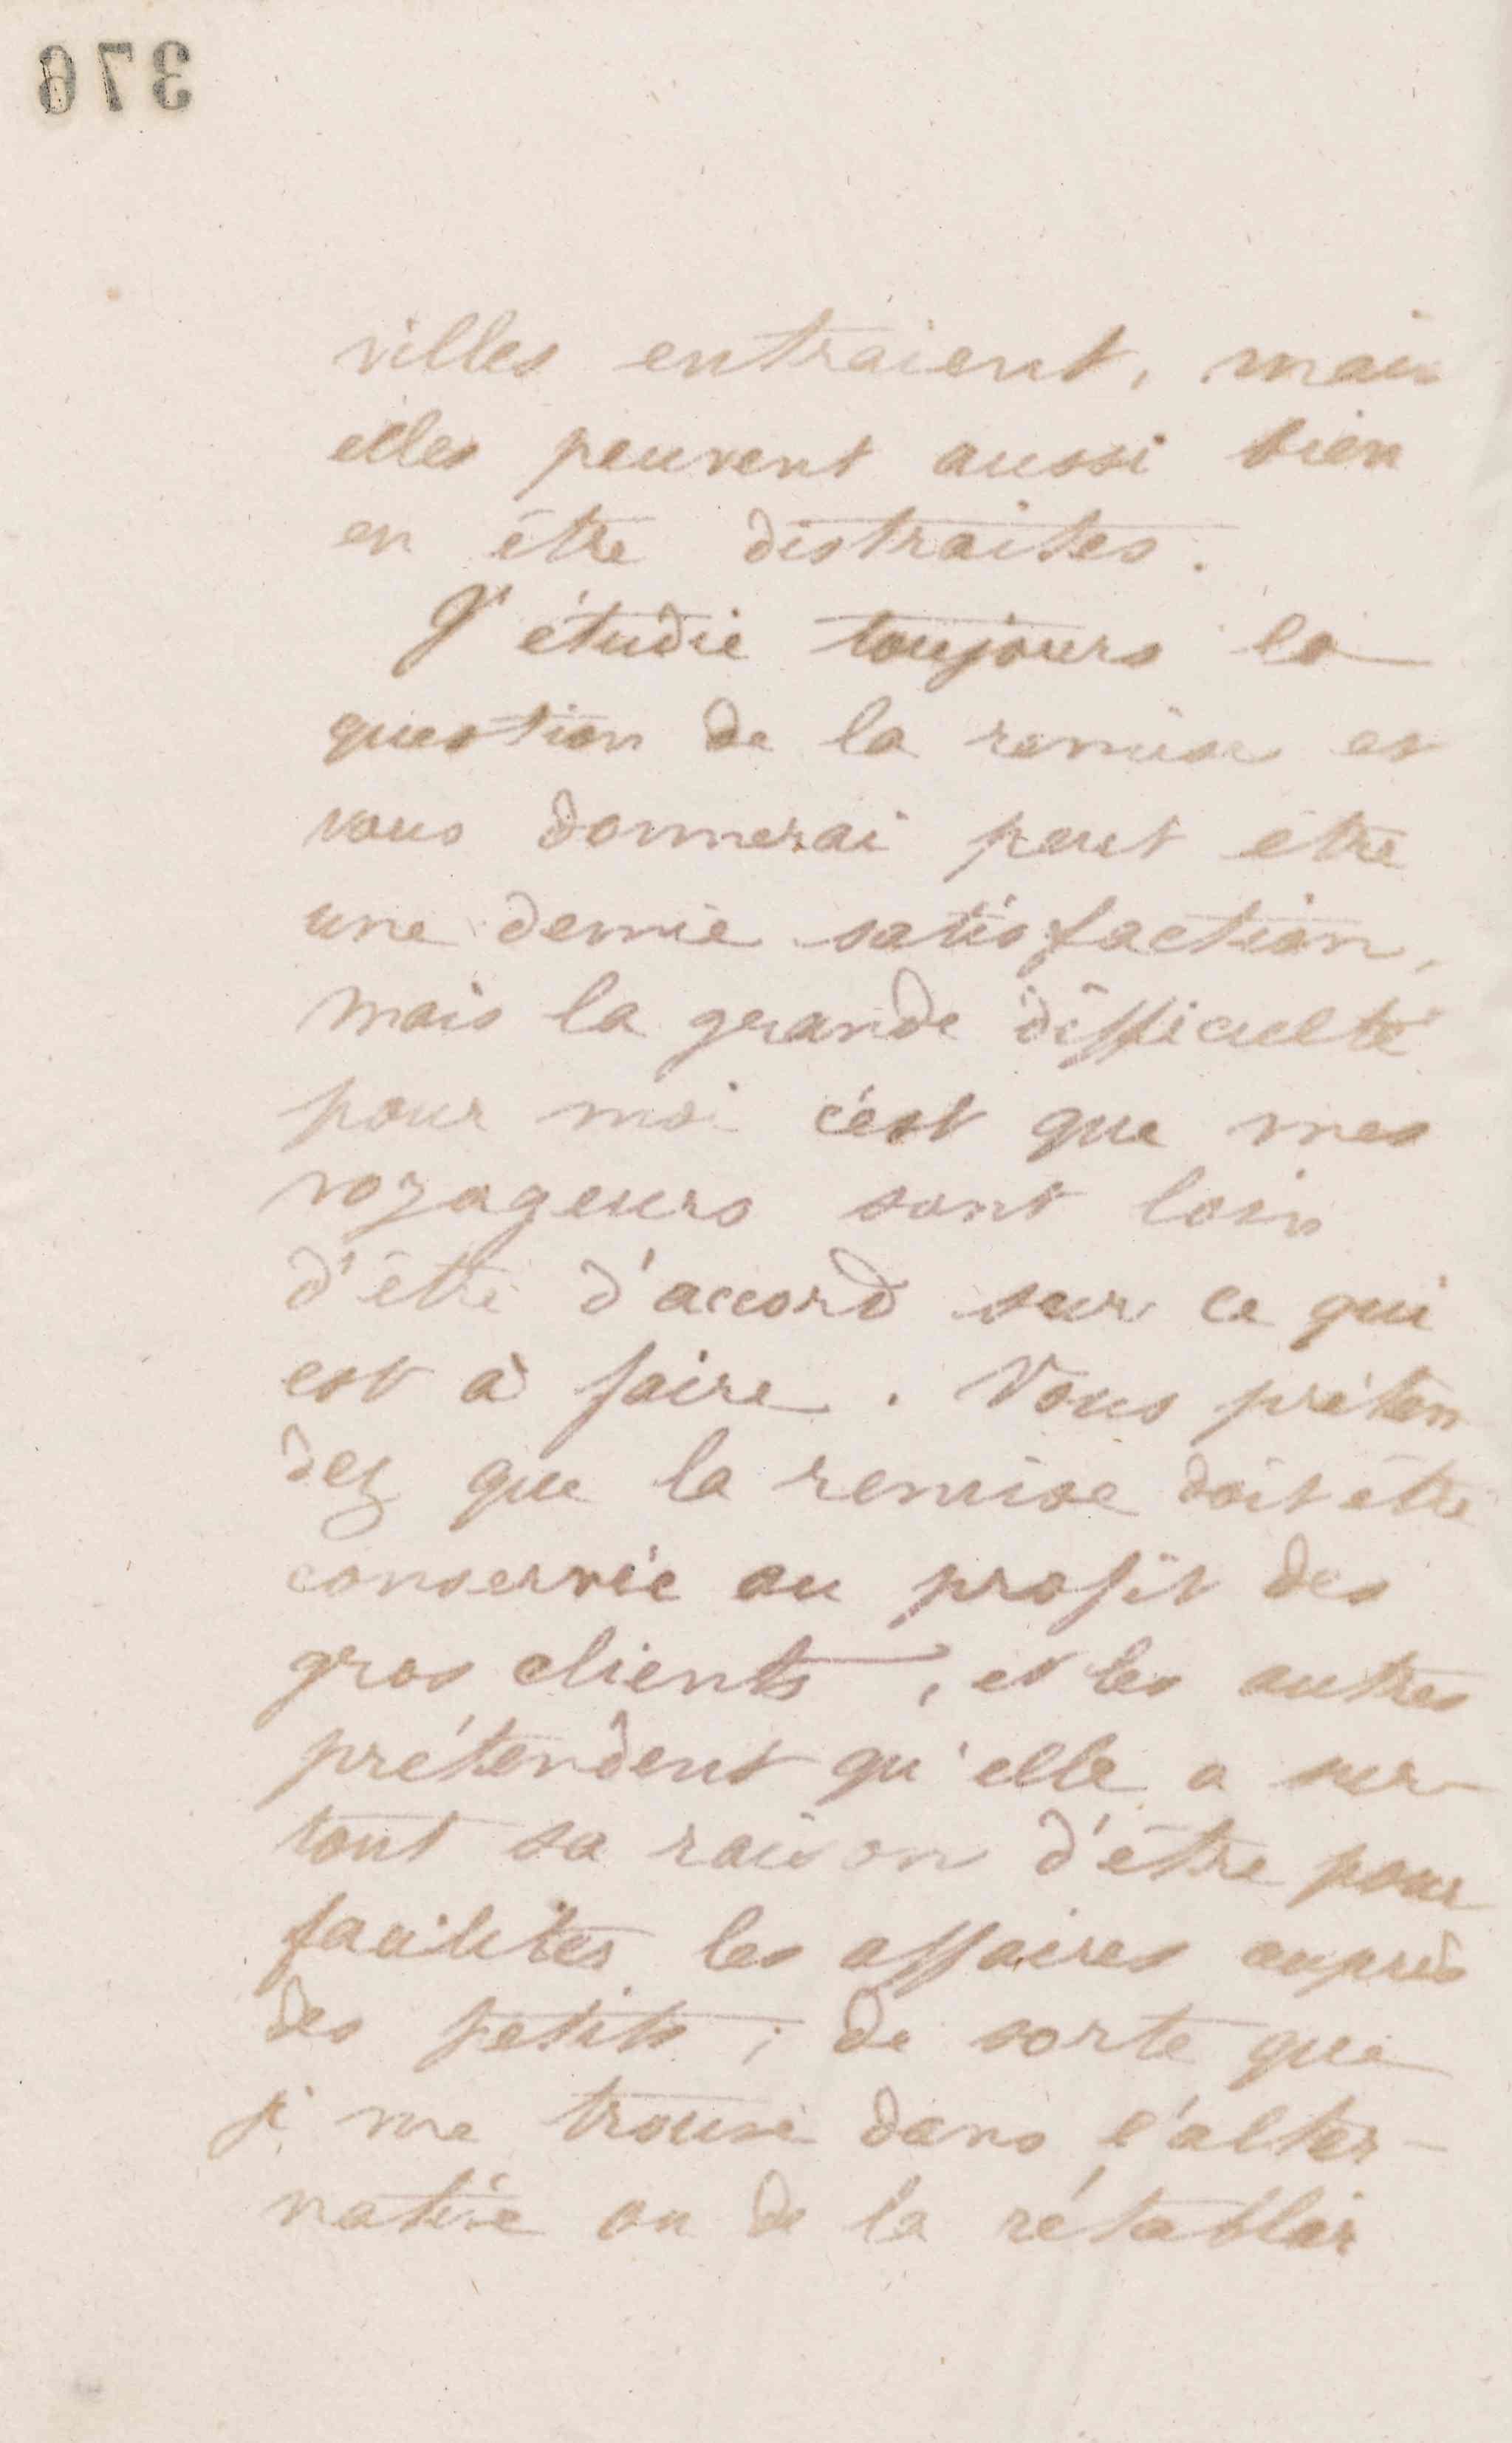 376
villes entraient, mais
elles peuvent aussi bien
en être distraites.
J'étudie toujours la
question de la remise et
vous donnerai peut être
une demie satisfaction,
mais la grande difficulté
pour moi c'est que mes
voyageurs sont loin
d'être d'accord sur ce qui
est à faire. Vous préten
dez que la remise doit être
conservée au profit des
gros clients, et les autres
prétendent qu'elle a sur-
tout sa raison d'être pour
faciliter les affaires auprès
des petits ; de sorte que
je me trouve dans l'alter-
native ou de la rétablir